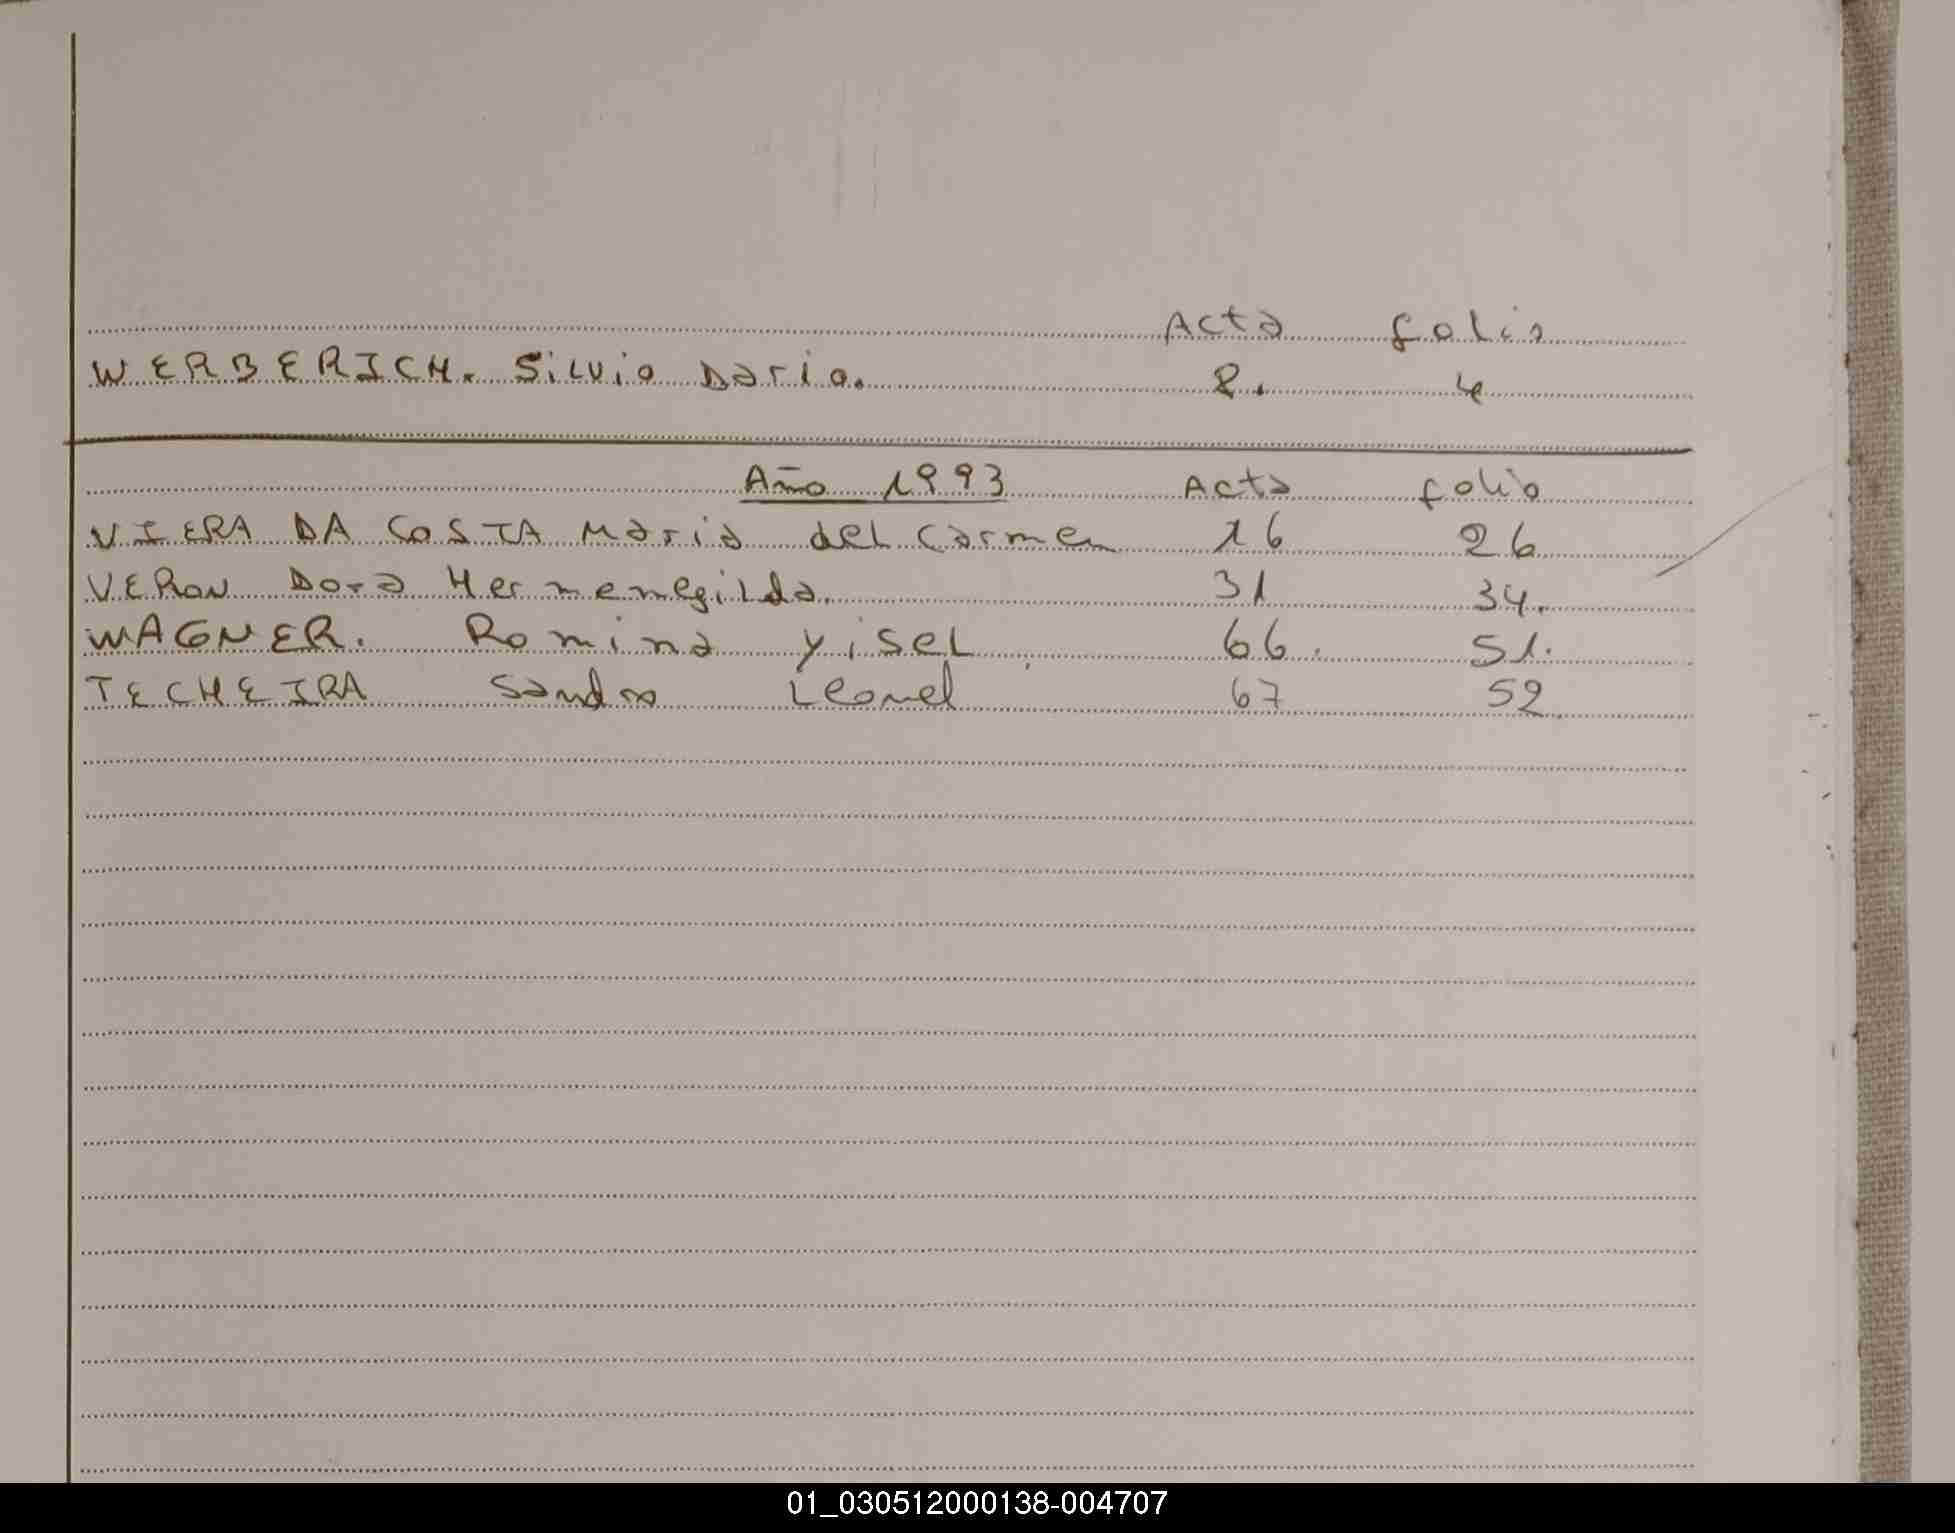 Acta folio
WERBERICH. Silvio Dario. 8. 4
Año 1993 Acta folio
VIERA DA COSTA Maria del Carmen 16 26
VERON Dora Hermenegilda. 31 34.
WAGNER. Romina Yisel 66. 51.
TECHEIRA Sandro Leonel 67 52
01_030512000138-004707